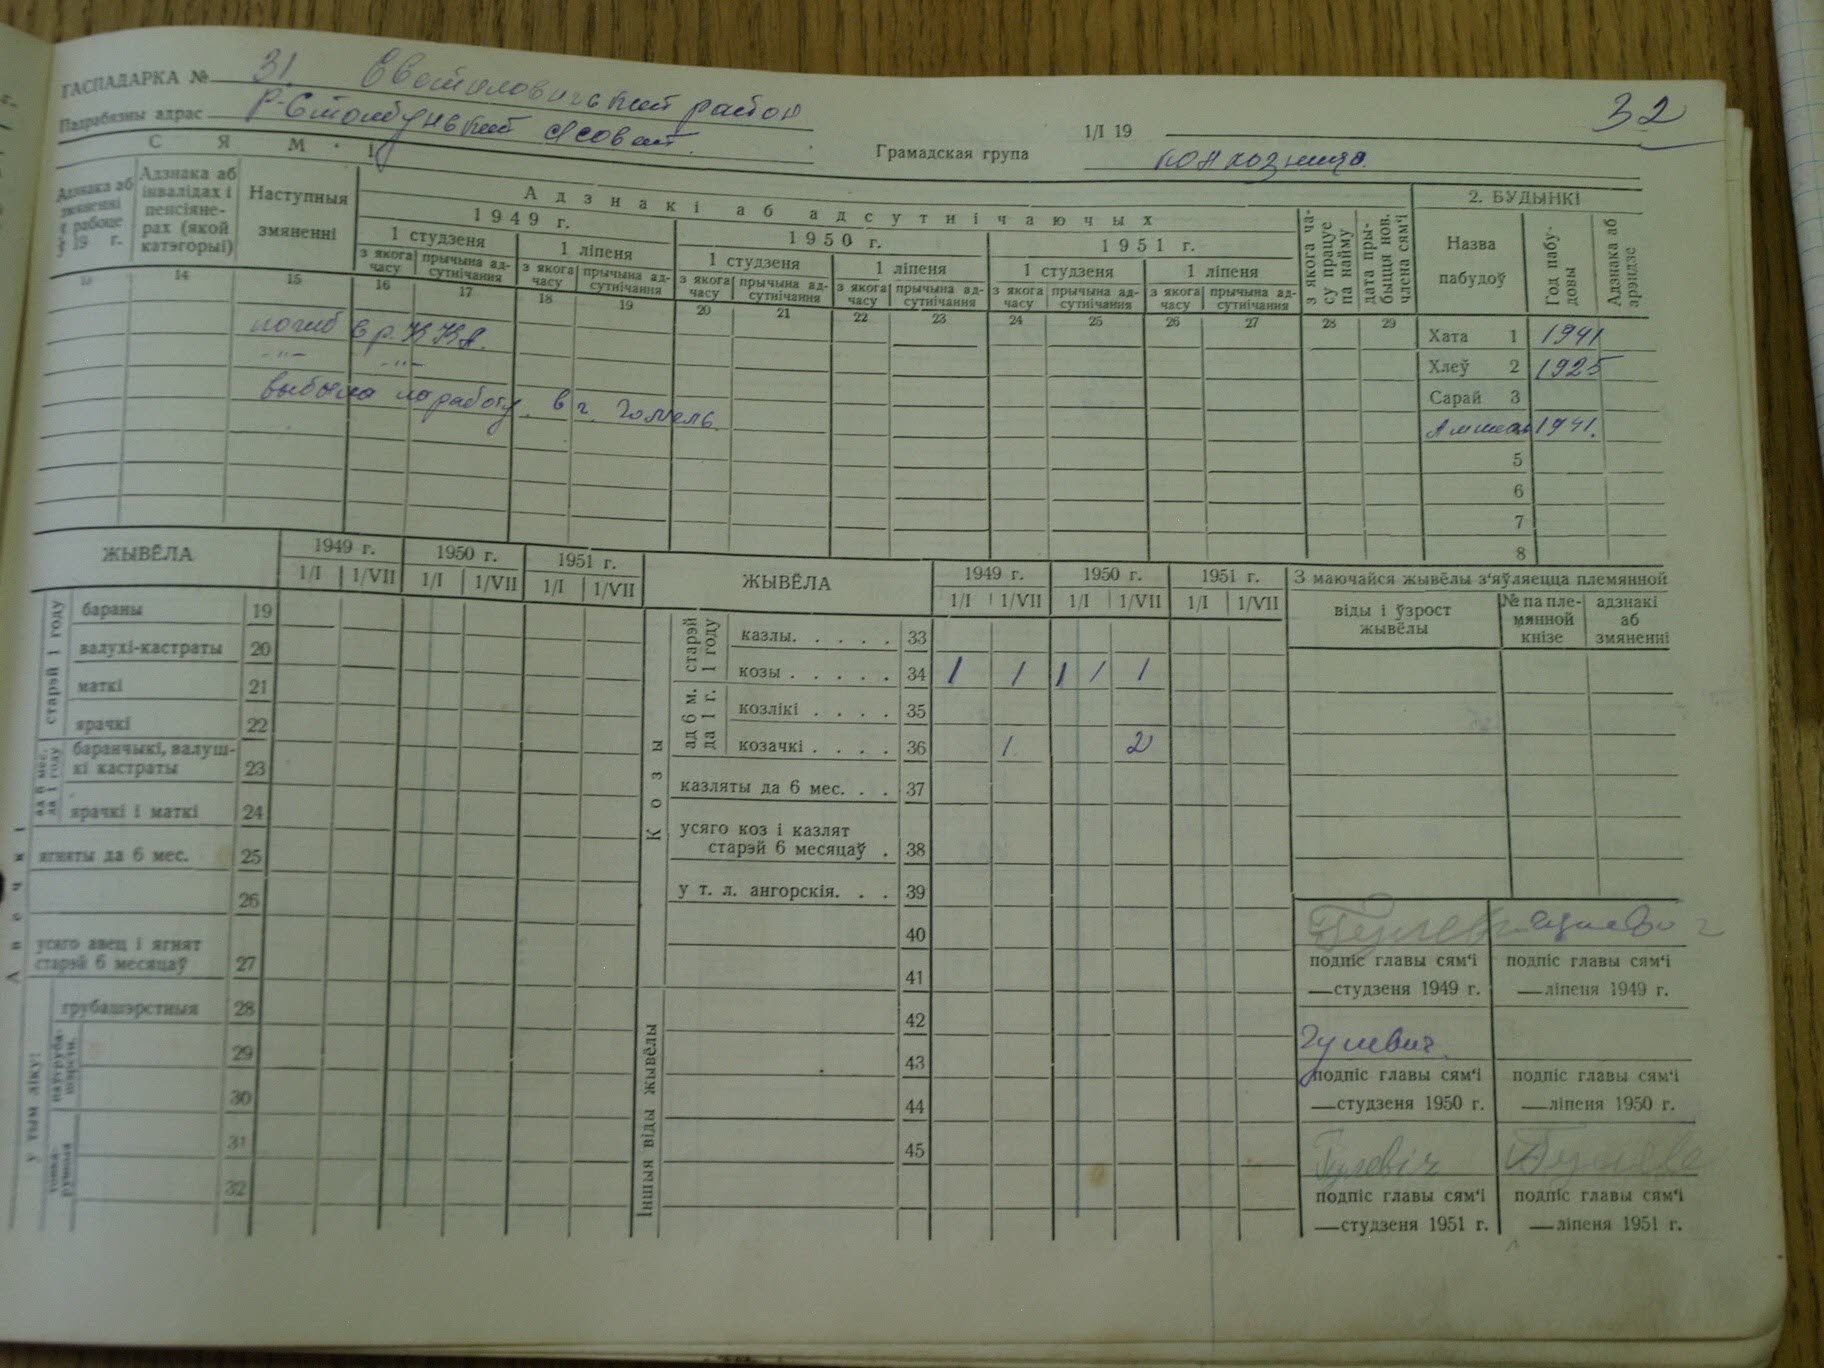 ГАСПАДАРКА № 31 Светиловичский район
Пагарбязны адрас Р-Столбунский с/совет.
32
1/I 19
Грамадская група колхозница.
С Я М ' І
Адзнака аб змяненні в рабоце ў 19 г.
Адзнака аб інвалідах і пенсіяне- рах (якой катэгорыі)
Наступныя змяненні
Адзнакі аб адсутнічаючых
1949 г.
1950 г.
1951 г.
1 студзеня
1 ліпеня
1 студзеня
1 ліпеня
1 студзеня
1 ліпеня
з якога часу
прычына ад- сутнічання
з якога часу
прычына ад- сутнічання
з якога часу
прычына ад- сутнічання
з якога часу
прычына ад- сутнічання
з якога часу
прычына ад- сутнічання
з якога часу
прычына ад- сутнічання
з якога ча- су працуе па найму
дата пры- быцця нов. члена сям'і
2. БУДЫНКІ
Назва пабудоў
Год пабу- довы
Адзнака аб арэндзе
13 14 15 16 17 18 19 20 21 22 23 24 25 26 27 28 29
погиб в р. ККА.
-"- -"-
выбыла на работу в г. Гомель.
Хата 1 1941
Хлеў 2 1925
Сарай 3
1941.
5
6
7
8
ЖЫВЁЛА
1949 г. 1950 г. 1951 г.
1/I 1/VII 1/I 1/VII 1/I 1/VII
Авечкі
старэй 1 году
бараны 19
валухі-кастраты 20
маткі 21
ярачкі 22
ад 6 мес. да 1 году
баранчыкі, валуш- кі кастраты 23
ярачкі і маткі 24
ягняты да 6 мес. 25
26
усяго авец і ягнят старэй 6 месяцаў 27
у тым ліку:
грубашэрстныя 28
29
30
31
32
ЖЫВЁЛА
1949 г. 1950 г. 1951 г.
1/I 1/VII 1/I 1/VII 1/I 1/VII
Козы
старэй 1 году
казлы. . . . . 33
козы . . . . . 34 1 1 1 1 1
ад 6 м. да 1 г.
козлікі . . . . 35
козачкі . . . . 36 1 2
казляты да 6 мес. . . 37
усяго коз і казлят
старэй 6 месяцаў . 38
у т. л. ангорскія. . . 39
40
41
Іншыя віды жывёлы
42
43
44
45
З маючайся жывёлы з'яўляецца племянной
віды і ўзрост жывёлы
№ па пле- мянной кнізе
адзнакі аб змяненні
подпіс главы сям'і подпіс главы сям'і
—студзеня 1949 г. —ліпеня 1949 г.
Гулевич.
подпіс главы сям'і подпіс главы сям'і
—студзеня 1950 г. —ліпеня 1950 г.
Гулевіч
подпіс главы сям'і подпіс главы сям'і
—студзеня 1951 г. —ліпеня 1951 г.